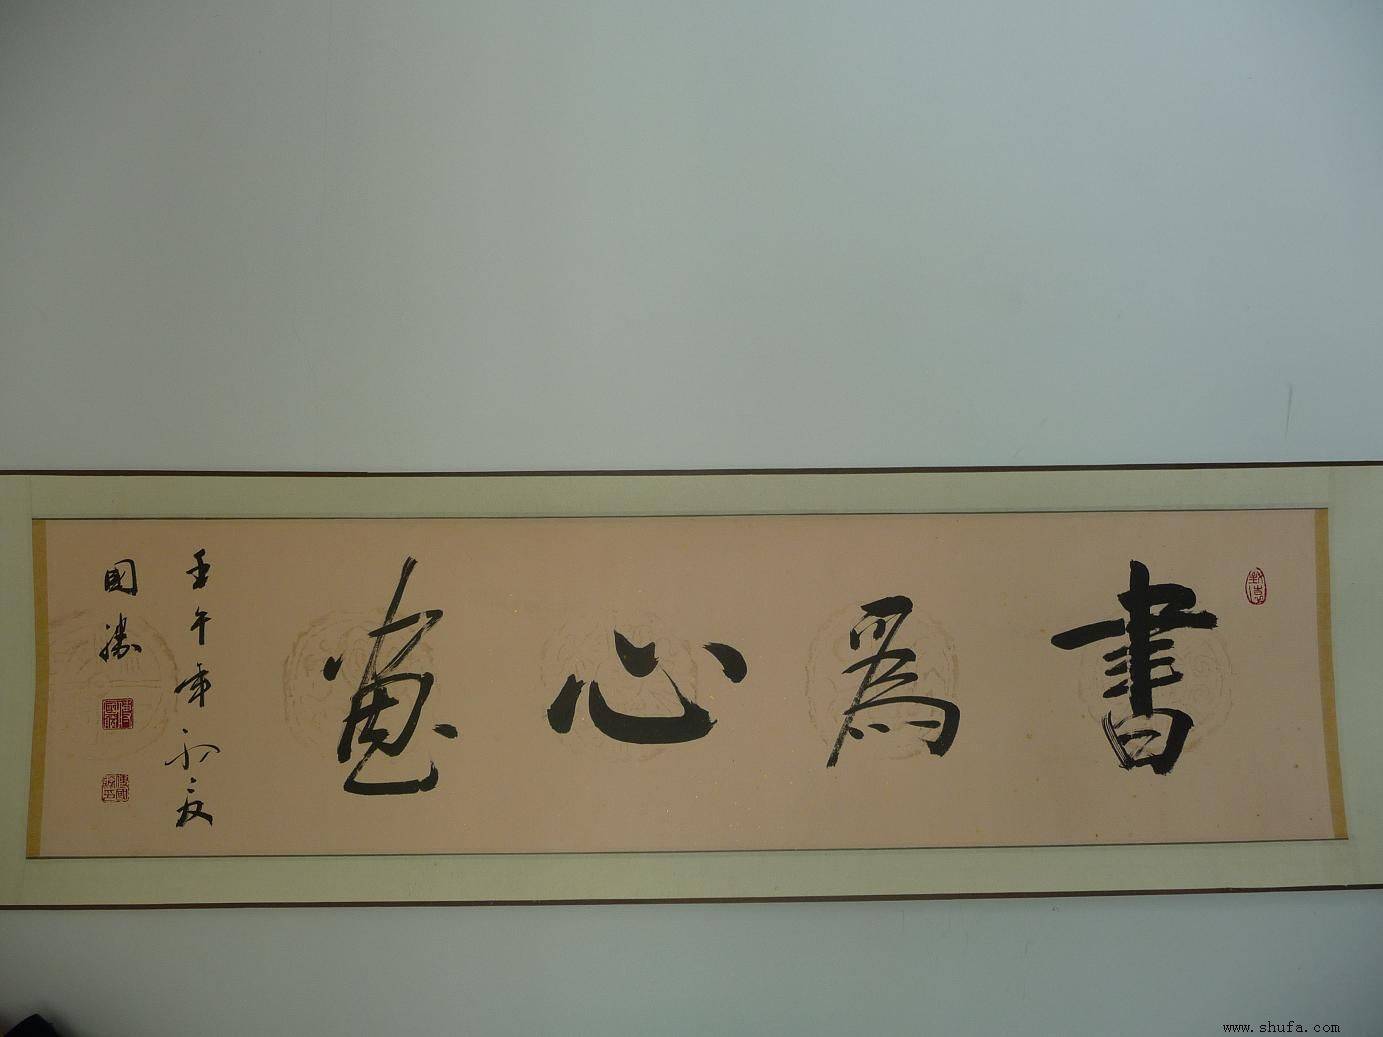 書為心畫
壬午年
國勝
www.shufa.com